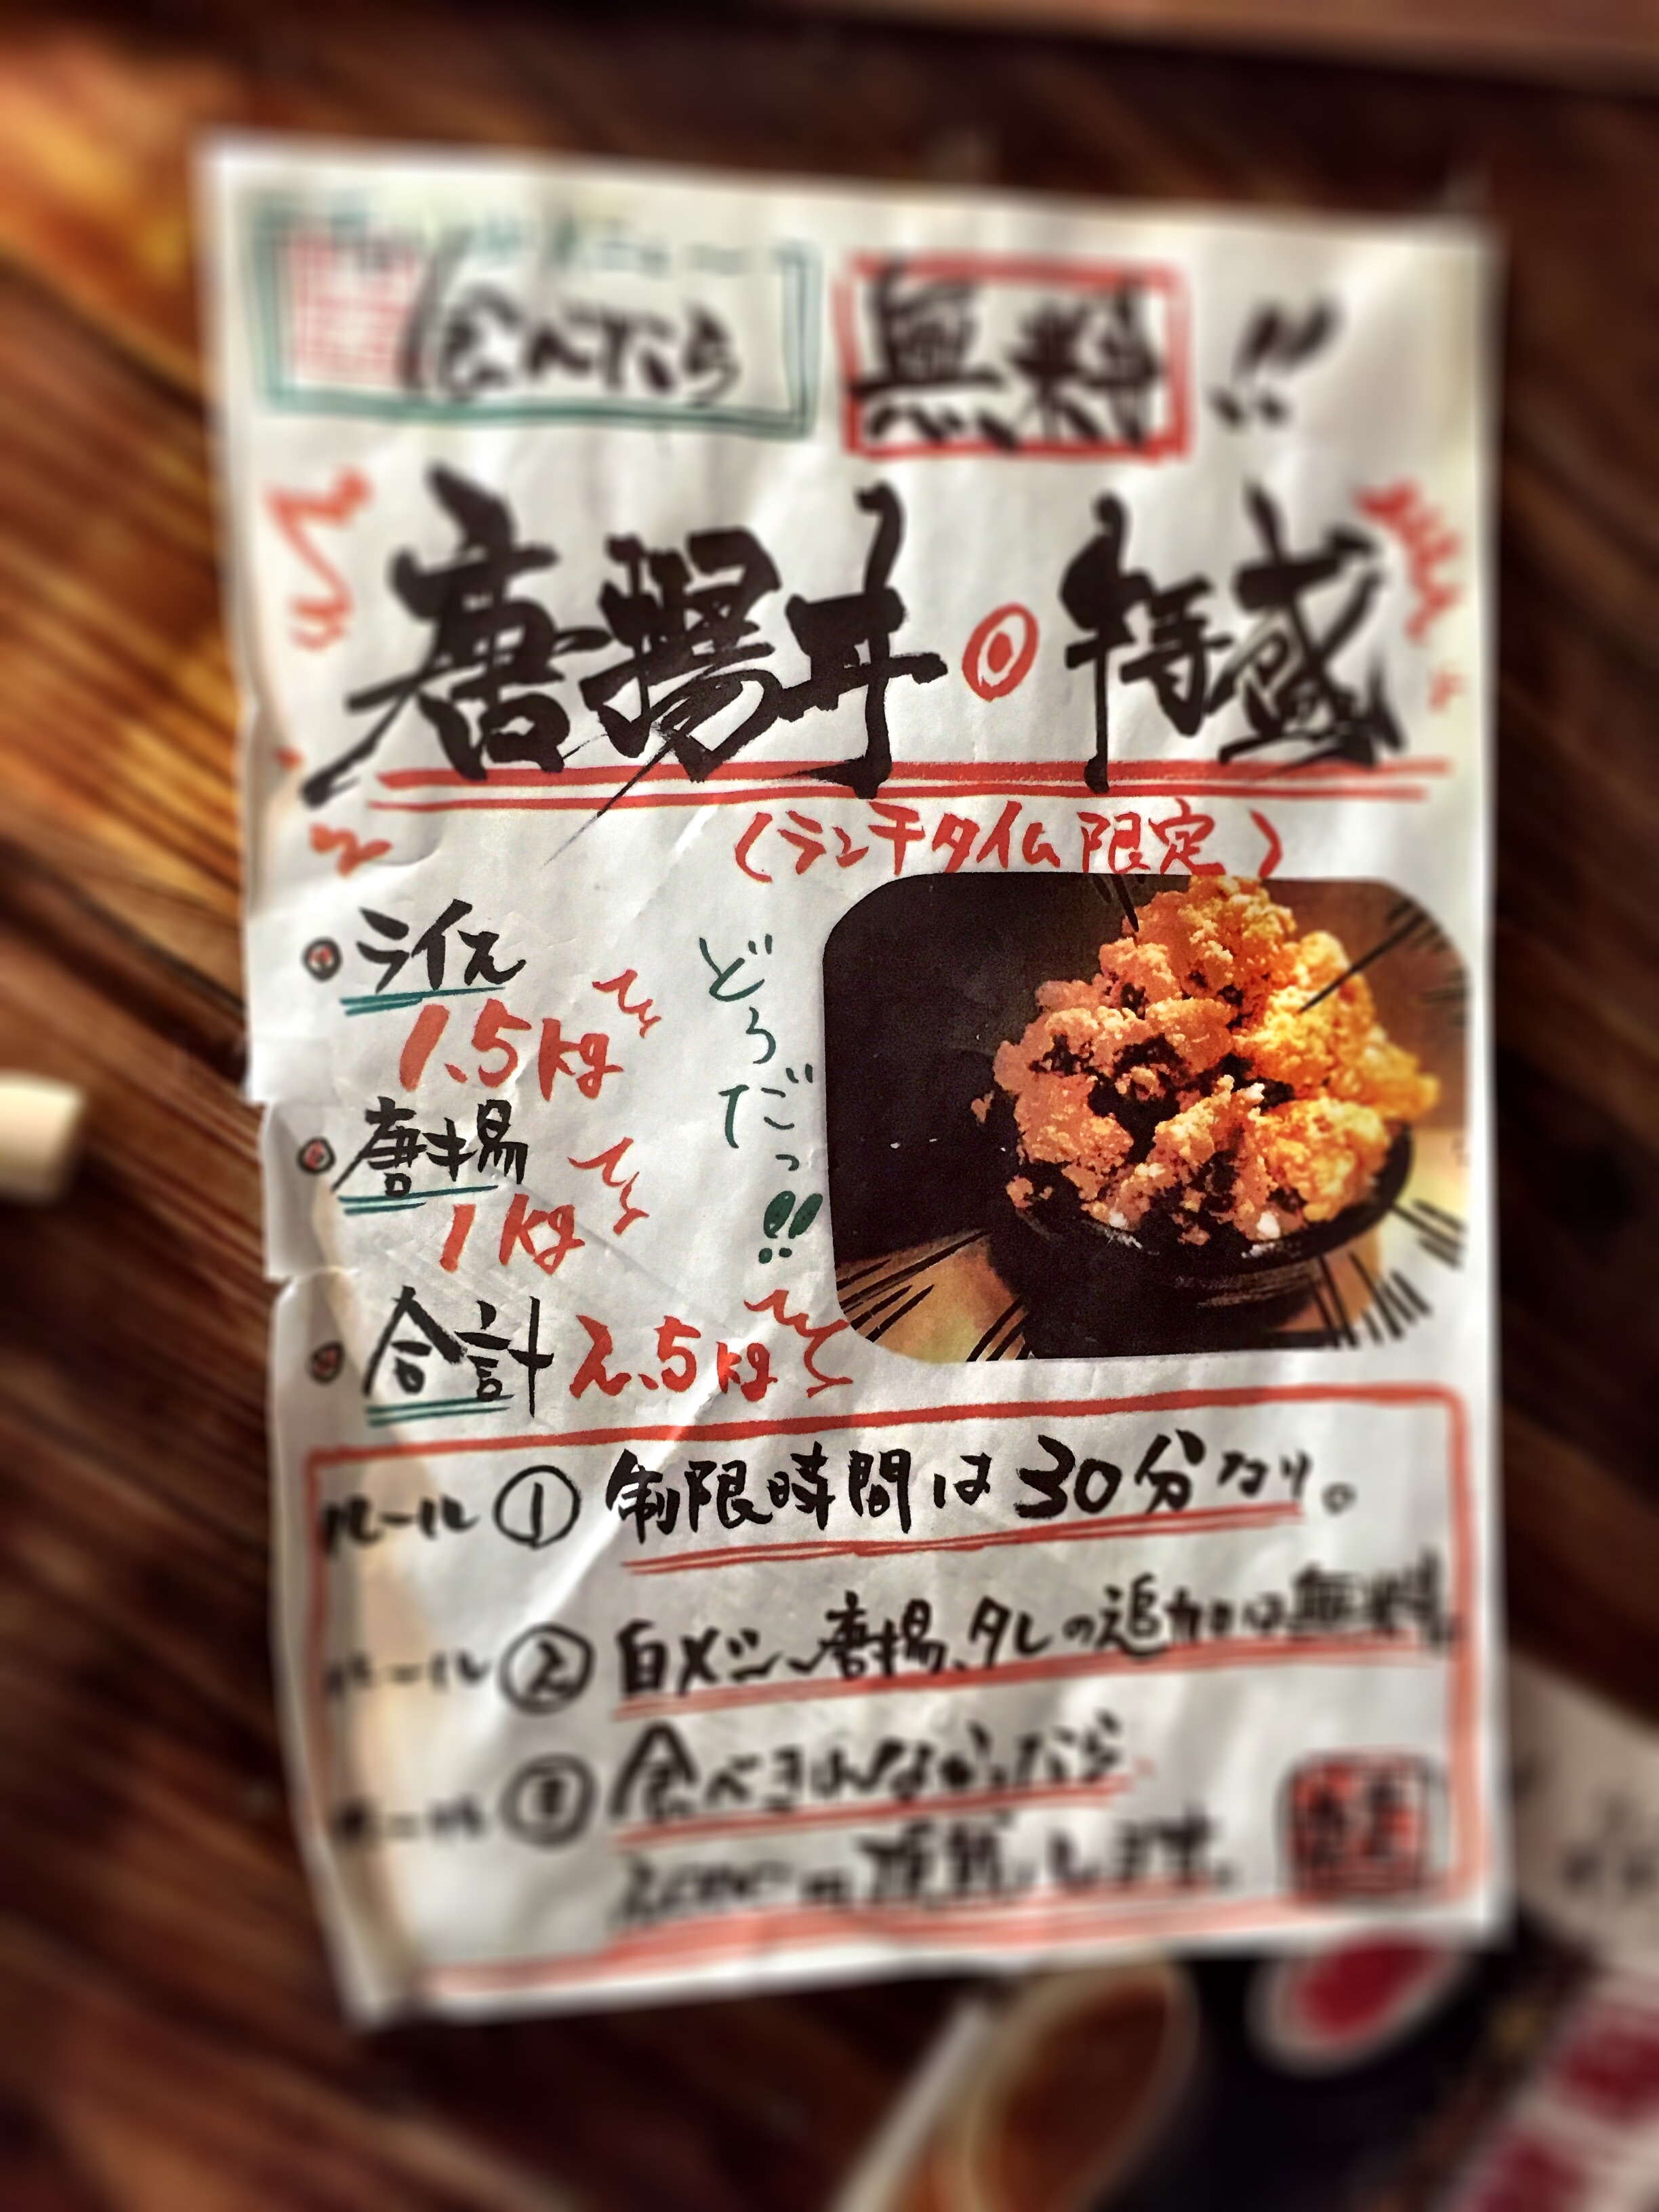 食べたら 無料!!
唐揚丼 特盛
(ランチタイム限定)
ライス
1.5kg
唐揚
1kg
合計 2.5kg
どうだっ!!
ルール① 制限時間は30分なり。
ルール② 白メシ、唐揚、タレの追加は無料。
ルール③ 食べきれなかったら
頂戴します。